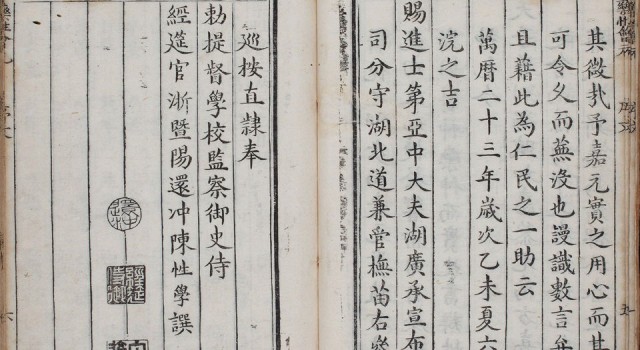 其微哉予嘉元實之用心而其
可令久而蕪沒也謾識數言弁
且藉此為仁民之一助云
萬曆二十三年歲次乙未夏六
浣之吉
賜進士第亞中大夫湖廣承宣布
司分守湖北道兼管撫苗右參
巡按直隸奉
勅提督學校監察御史侍
經筵官浙暨陽還冲陳性學譔